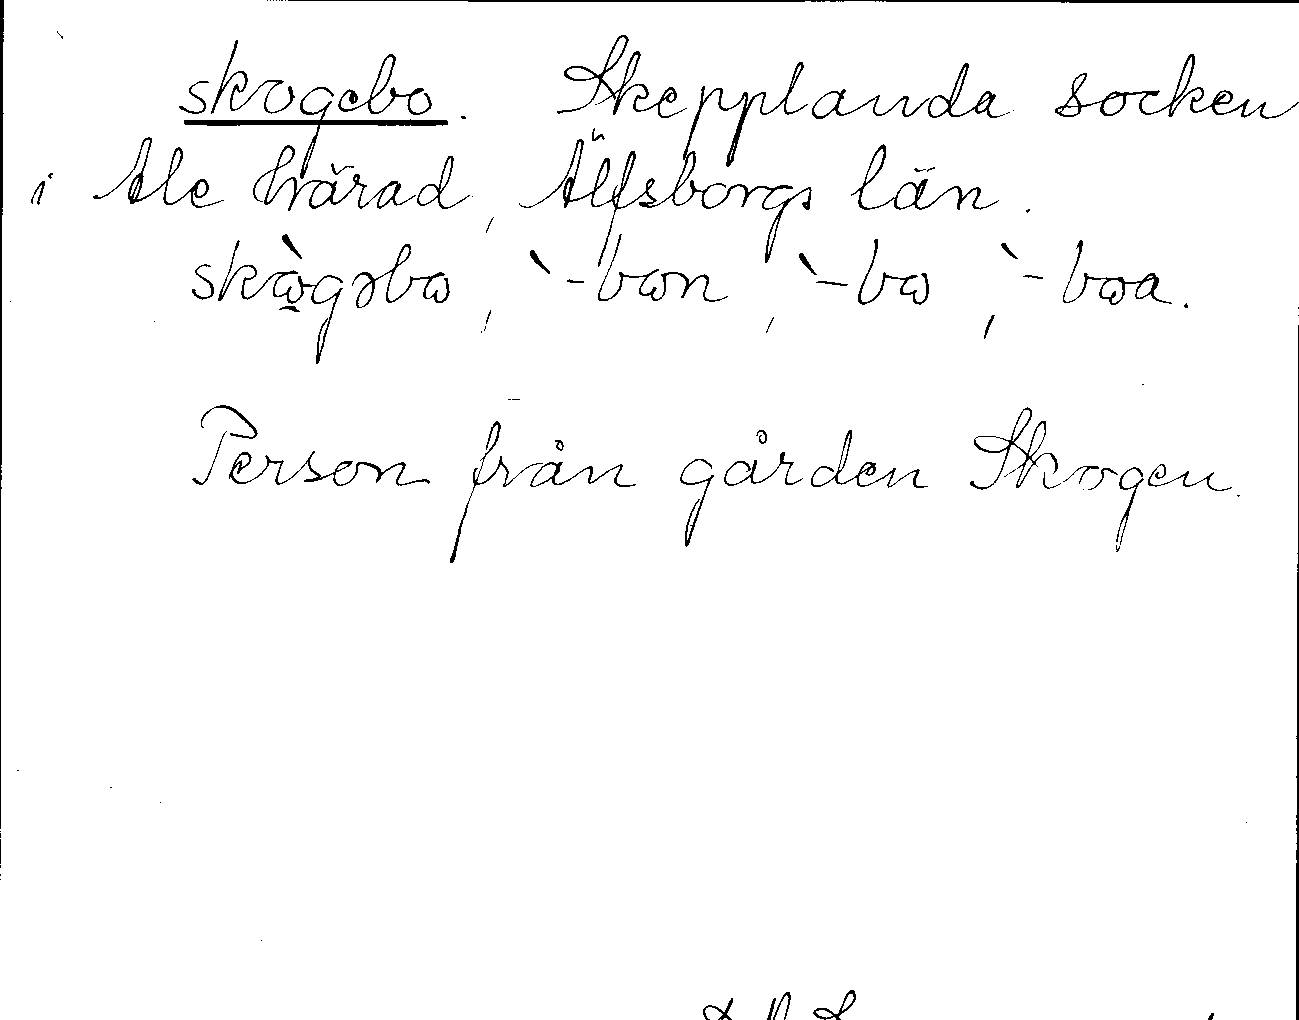 skogebo. Skepplanda socken
i Ale härad, Älfsborgs län.
skɷ̠̀gəbɷ, `-bɷn, `-bɷ, `-bɷa.
Person från gården Skogen.